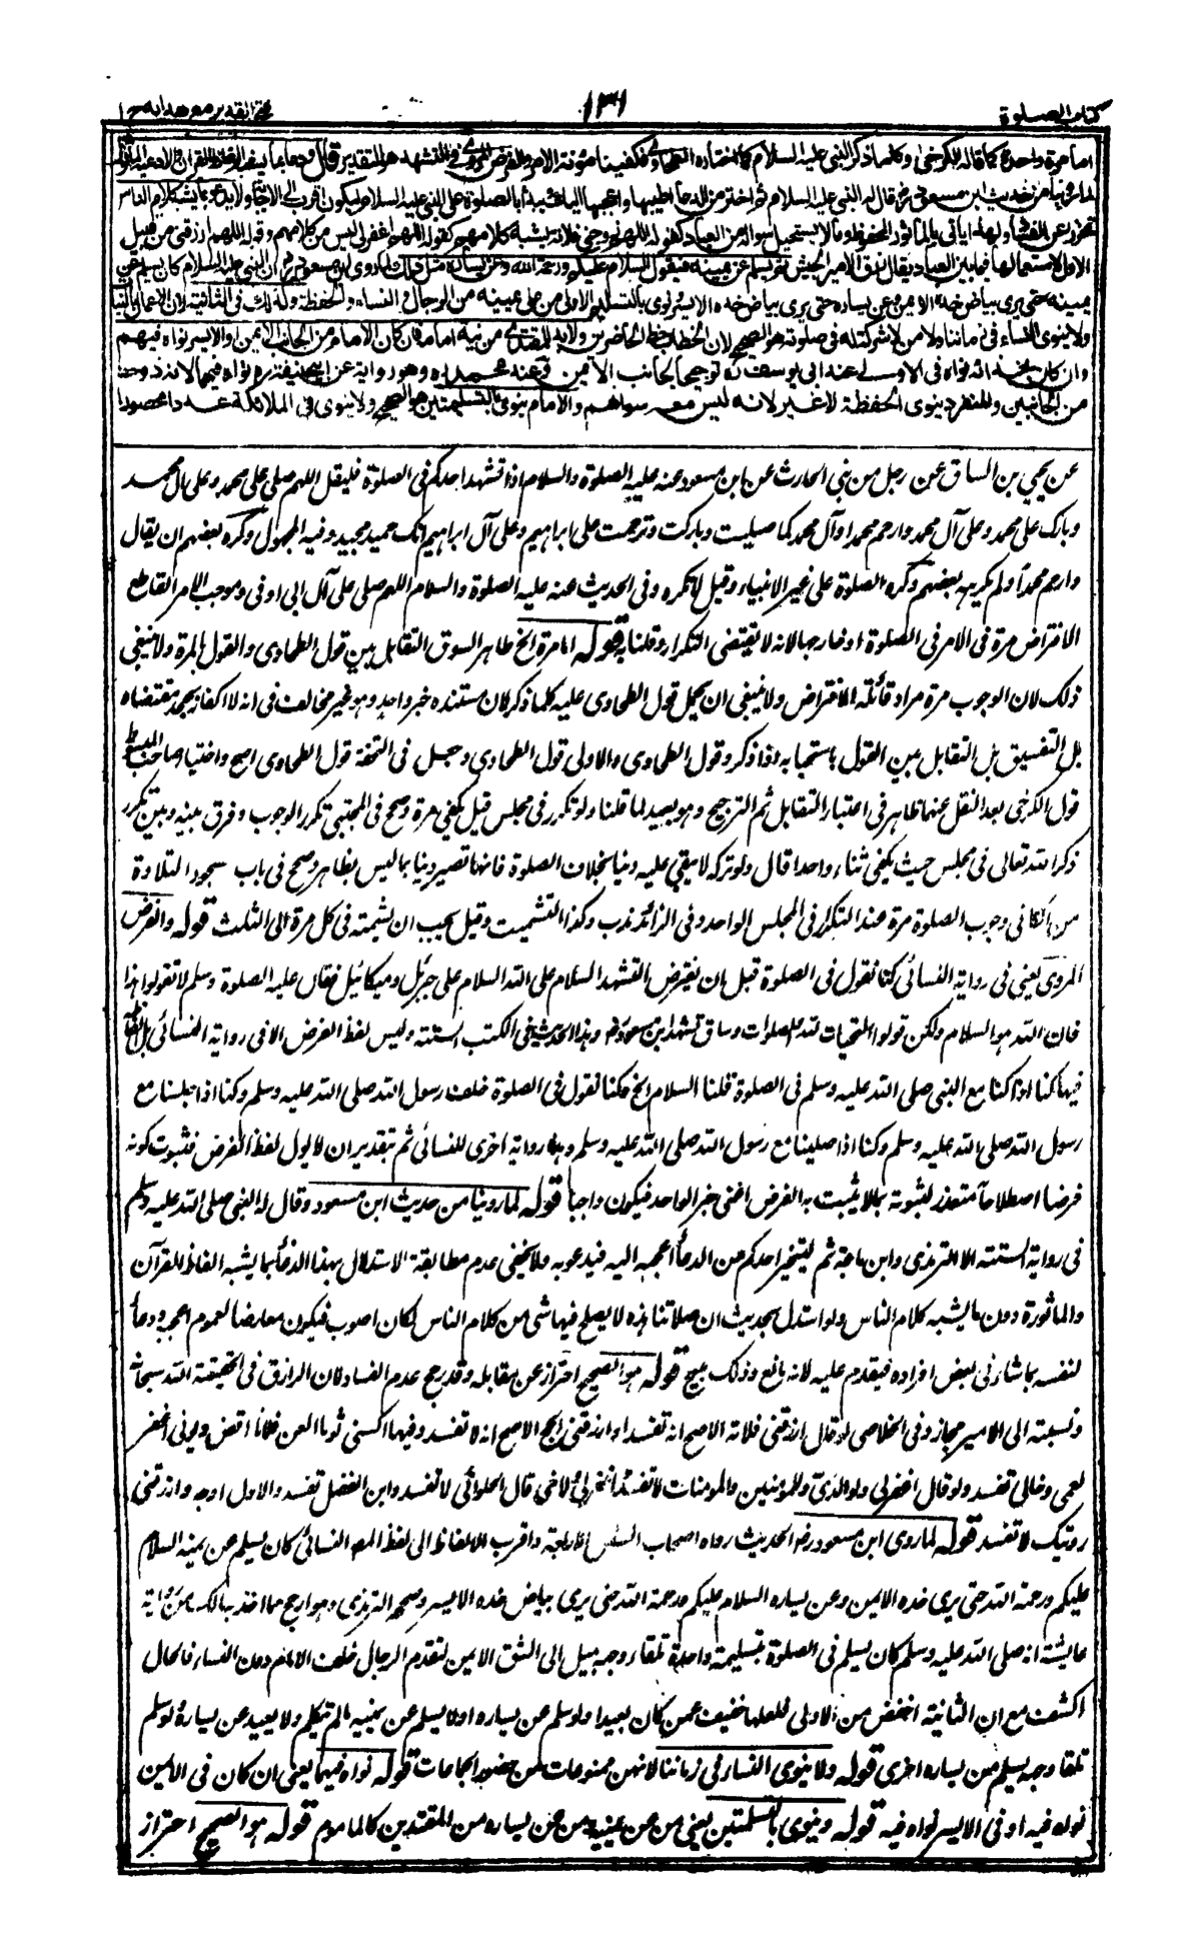 كتاب الصلوة
١٣٦
فتح القدير مع هدايه ج ١
اما مرة واحدة كما قاله الكرخي او كلما ذكر النبي عليه السلام كما اختاره الطحاوي فكفينا مؤنة الامر والفرض المروي في التشهد هو التقدير قال ودعا بما يشبه الفاظ القران والادعية الماثورة
لما روينا من حديث ابن مسعود رض قال له النبي عليه السلام ثم اختر من الدعاء اطيبها واعجبها اليك ويبدأ بالصلوة على النبي عليه السلام ليكون اقرب الى الاجابة ولا يدعو بما يشبه كلام الناس
تحرزا عن الفساد ولهذا ياتي بالماثور المحفوظ وما لا يستحيل سواله من العباد كقوله اللهم زوجني فلانة يشبه كلامهم وما يستحيل كقوله اللهم اغفر لي ليس من كلامهم وقوله اللهم ارزقني من قبيل
الاول لاستعمالها فيما بين العباد يقال رزق الامير الجيش ثم يسلم عن يمينه فيقول السلام عليكم ورحمة الله وعن يساره مثل ذلك لما روى ابن مسعود رض ان النبي عليه السلام كان يسلم عن
يمينه حتى يرى بياض خده الايمن وعن يساره حتى يرى بياض خده الايسر ونوى بالتسليم الاولى من على يمينه من الرجال والنساء والحفظة وكذلك في الثانية لان الاعمال بالنيات
ولا ينوي النساء في زماننا ولا من لا شركة له في صلوته هو الصحيح لان الخطاب حظ الحاضرين ولا بد للمقتدي من نية امامه فان كان الامام من الجانب الايمن والايسر نواه فيهم
وان كان بحذائه نواه في الاولى عند ابي يوسف رح ترجيحا لجانب الايمن وعند محمد رح وهو رواية عن ابي حنيفة رح نواه فيهما لانه ذو حظ
من الجانبين والمنفرد ينوي الحفظة لا غير لانه ليس معه سواهم والامام ينوي بالتسليمتين هو الصحيح ولا ينوي في الملائكة عددا محصورا
عن يحيى بن السباق عن رجل من بني الحارث عن ابن مسعود عنه عليه الصلوة والسلام اذا تشهد احدكم في الصلوة فليقل اللهم صلي على محمد وعلى ال محمد
وبارك على محمد وعلى آل محمد وارحم محمدا وآل محمد كما صليت وباركت وترحمت على ابراهيم وعلى آل ابراهيم انك حميد مجيد وفيه المجهول وكره بعضهم ان يقال
وارحم محمدا ولم يكرهه بعضهم وتكره الصلوة على غير الانبياء وقيل لا تكره وفي الحديث عنه عليه الصلوة والسلام اللهم صلي على آل ابي اوفى وموجب الامر القاطع
الافتراض مرة في الامر في الصلوة او خارجها لانه لا يقتضي التكرار وقلنا به قوله اما مرة الخ ظاهر السوق التقابل بين قول الطحاوي والقول بالمرة ولا ينبغي
ذلك لان الوجوب مرة مراد قائله الافتراض ولا ينبغي ان يحمل قول الطحاوي عليه كلما ذكر لان مستنده خبر واحد وهو غير مخالف في انه لا اكفار بجحد مقتضاه
بل التفسيق بل التقابل بين القول باستحبابه اذا ذكر وقول الطحاوي والاولى قول الطحاوي وجعل في التحفة قول الطحاوي اصح واختيار صاحب المبسوط
قول الكرخي بعد النقل عنهما ظاهر في اعتبار التقابل ثم الترجيح وهو بعيد لما قلنا ولو تكرر في مجلس قيل يكفي مرة وصحح في المجتبى تكرر الوجوب وفرق بينه وبين تكرر
ذكر الله تعالى في مجلس حيث يكفي ثناء واحد قال ولو تركه لا يبقى عليه دينا بخلاف الصلوة فانها تصير دينا بما ليس بظاهر وصحح في باب سجود التلاوة
من الكافي وجوب الصلوة مرة عند التكرار في المجلس الواحد وفي الزائد ندب وكذا التشميت وقيل يجب ان يشمته في كل مرة الى الثلث قوله والفرض
المروي يعني في رواية النسائي كنا نقول في الصلوة قبل ان يفترض التشهد السلام على الله السلام على جبرئيل وميكائيل فقال عليه الصلوة وسلم لا تقولوا هذا
فان الله هو السلام ولكن قولوا التحيات لله والصلوات وساق تشهد ابن مسعود رض وهذا الحديث في الكتب الستة وليس لفظ الفرض الا في رواية النسائي بل الفاظ
فيها كنا اذا كنا مع النبي صلى الله عليه وسلم في الصلوة قلنا السلام الخ وكنا نقول في الصلوة خلف رسول الله صلى الله عليه وسلم وكنا اذا جلسنا مع
رسول الله صلى الله عليه وسلم وكنا اذا صلينا مع رسول الله صلى الله عليه وسلم وهذا رواية اخرى للنسائي ثم بتقدير ان لا يؤل لفظ الفرض فثبوت كونه
فرضا اصطلاحا متعذر لثبوته بما لا يثبت به الفرض اعني خبر الواحد فيكون واجبا قوله لما روينا من حديث ابن مسعود وقال له النبي صلى الله عليه وسلم
في رواية الستة الا الترمذي وابن ماجة ثم ليتخير احدكم من الدعاء اعجبه اليه فيدعو به ولا يخفى عدم مطابقة الاستدلال بهذا الدعاء بما يشبه الفاظ القرآن
والماثورة دون ما يشبه كلام الناس ولو استدل بحديث ان صلاتنا هذه لا يصلح فيها شئ من كلام الناس لكان اصوب فيكون معارضا لعموم اعجبه ودعاء
لنفسه بما شاء في بعض افراده فيقدم عليه لانه مانع وذلك مبيح قوله هو الصحيح احتراز عن مقابله وقد رجح عدم الفساد لان الرازق في الحقيقة الله سبحانه
ونسبته الى الامير مجاز وفي الخلاصي لو قال ارزقني فلانة الاصح انه تفسد او ارزقني الحج الاصح انه لا تفسد وفيها اكسني ثوبا العن فلانا اقض ديوني اغفر
لعمي وخالي تفسد ولو قال اغفر لي ولوالدي وللمؤمنين والمومنات لا تفسد اغفر لي ولاخي قال الحلوائي لا تفسد وابن الفضل تفسد والاول اوجه وارزقني
رؤيتك لا تفسد قوله لما روى ابن مسعود رض الحديث رواه اصحاب السنن الاربعة واقرب الالفاظ الى لفظ المص النسائي كان يسلم عن يمينه السلام
عليكم ورحمة الله حتى يرى خده الايمن وعن يساره السلام عليكم ورحمة الله حتى يرى بياض خده الايسر وصححه الترمذي وهو ارجح مما اخذ به مالك من رواية
عايشة انه صلى الله عليه وسلم كان يسلم في الصلوة تسليمة واحدة تلقاء وجهه يميل الى الشق الايمن لتقدم الرجال خلف الامام دون النساء فالحال
اكشف مع ان الثانية اخفض من الاولى فلعلها خفيت عمن كان بعيدا ولو سلم عن يساره اولا يسلم عن يمينه ما لم يتكلم ولا يعيد عن يساره ولو سلم
تلقاء وجهه يسلم عن يساره اخرى قوله ولا ينوي النساء في زماننا لانهن ممنوعات من حضور الجماعات قوله نواه فيهما يعني ان كان في الايمن
نواه فيه او في الايسر نواه فيه قوله وينوي بالتسليمتين يعني من عن يمينه ومن عن يساره من المقتدين كالماموم قوله هو الصحيح احتراز